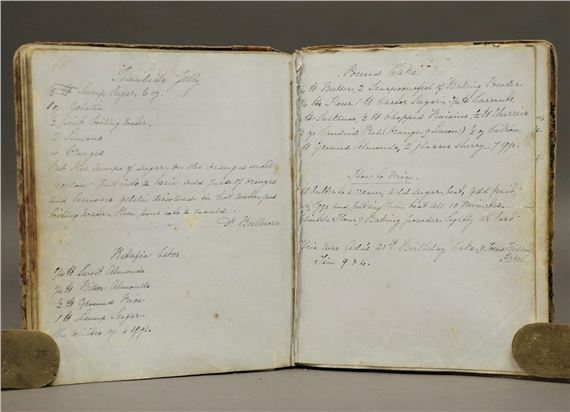 Jelly
Lump Sugar 6 oz.
1 oz Gelatin
½ pint boiling water
2 Lemons
4 Oranges
Rub the lumps of sugar on the oranges until
yellow put into a basin, add juice of oranges
and lemons gelatin dissolved in hot water, and
boiling water then pour into a mould.
Ratafia Cakes
¼ lb Sweet Almonds
¼ lb Bitter Almonds
½ lb Ground Rice
1 lb Lump Sugar.
the Whites of 4 Eggs.
Pound Cake.
lb Butter, 2 Teaspoonsful of Baking Powder
lb Flour 1 lb Castor Sugar, ¾ lb Currants
lb Sultanas, ½ lb Chopped Raisins ½ lb Cherries
Candied Peel Orange & Lemon, ½ oz Citron
lb Ground Almonds, 2 glasses sherry, 7 Eggs.
How to Mix.
butter to cream, add sugar, beat, add fruit,
Eggs and
flour & Baking powder lightly at last
This was 21st Birthday Cake, &
Tin 9 x 4.